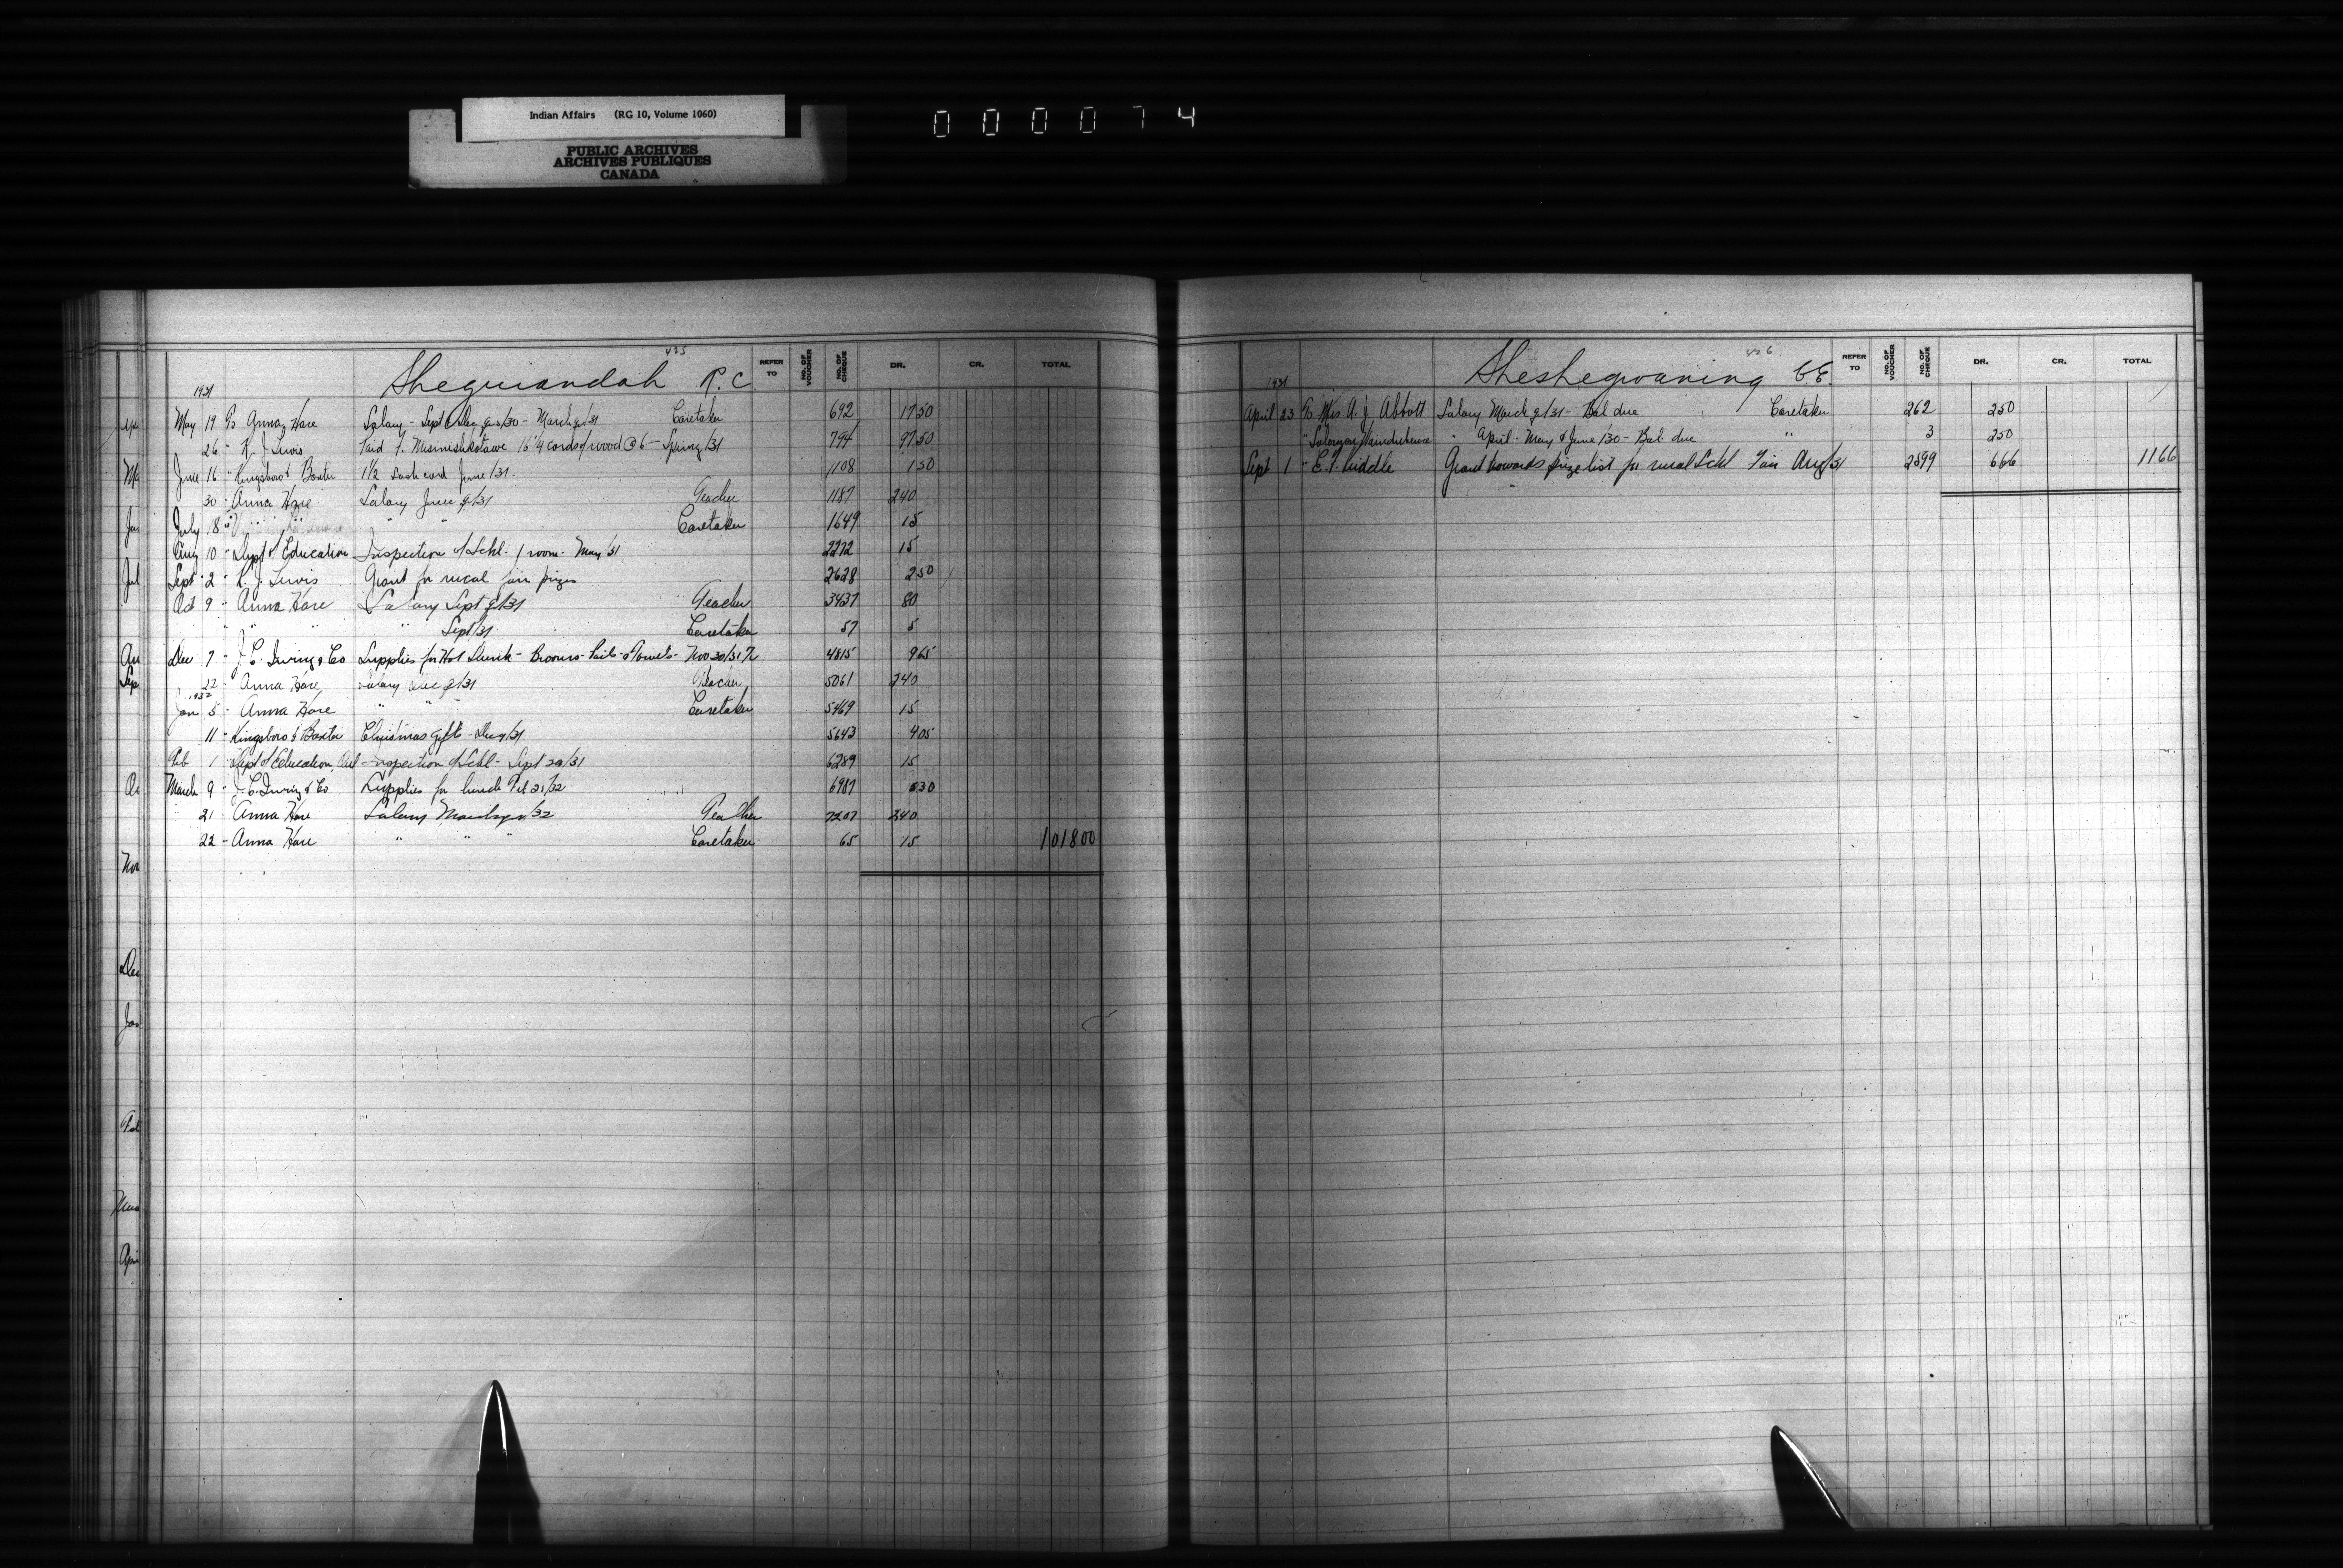 Indian Affairs (RG 10, Volume 1060)
PUBLIC ARCHIVES
ARCHIVES PUBLIQUES
CANADA
000074
425
Sheguiandah R.C.
REFER TO NO. OF VOUCHER NO. OF CHEQUE DR. CR. TOTAL
1931
May 19 To Anna Hare Salary - Sept & Dec qrs/30 - March qr/31 Caretaker 692 17 50
26 " R. J. Lewis Paid 16 1/4 cords of wood @ 6 - Spring/31 794 97 50
June 16 " Kingsboro & Baxter 1 1/2 sash cord June/31. 1108 1 50
30 " Anna Hare Salary June q/31 Teacher 1187 240
July 8 " " " Caretaker 1649 15
Aug 10 " Dept of Education Inspection of Schl - 1 room - May/31 2272 15
Sept 2 " R. J. Lewis Grant for rural fair prizes 2628 2 50
Oct 9 " Anna Hare Salary Sept q/31 Teacher 3437 80
" " " " Sept/31 Caretaker 57 5
Dec 7 " J. C. Irving & Co Supplies for Hot Lunch - Brooms - Pails - Towels - Nov 30/31 4815 9 65
22 " Anna Hare Salary Dec q/31 Teacher 5061 240
1932
Jan 5 " Anna Hare " " Caretaker 5469 15
11 " Kingsboro & Baxter Christmas gifts - Dec/31 5643 4 05
Feb 1 " Dept of Education, Ont Inspection of Schl - Sept 29/31 6289 15
March 9 " J. C. Irving & Co Supplies for lunch Feb 25/32 6987 5 30
21 " Anna Hare Salary March qr/32 Teacher 7207 240
22 " Anna Hare " " Caretaker 65 15 1018 00
426
Sheshegwaning C.E.
REFER TO NO. OF VOUCHER NO. OF CHEQUE DR. CR. TOTAL
1931
April 23 To Mrs A. J. Abbott Salary March q/31 - Bal due Caretaker 262 2 50
" " April - May & June/30 - Bal. due " 3 2 50
Sept 1 " Riddle Grant towards prize list for rural Schl Fair Aug/31 2599 6 66 11 66